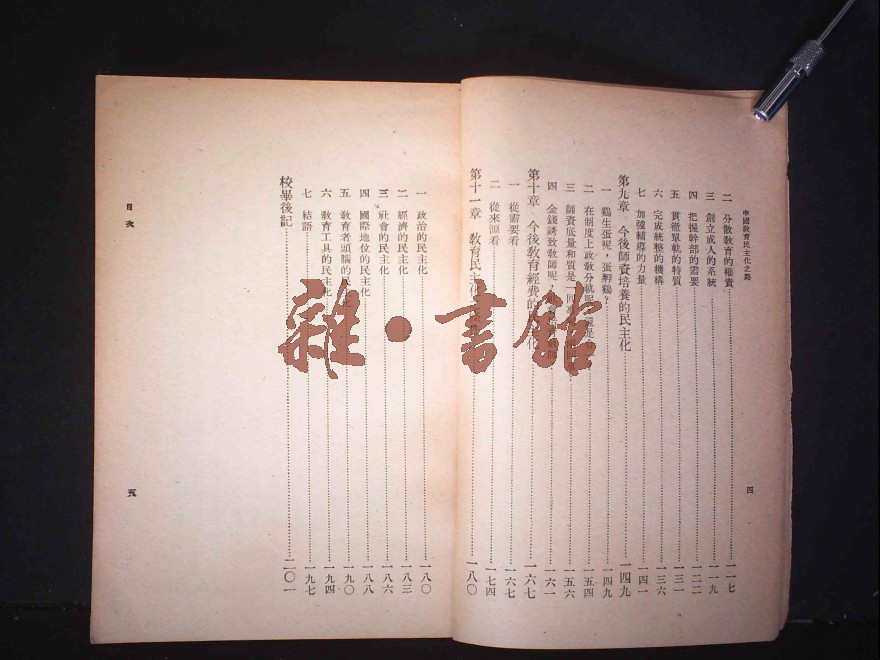 中國敎育民主化之路
四
二　分散敎育的權責……一一七
三　創立成人的系統……一一九
四　把握幹部的需要……一二二
五　貫徹單軌的特質……一三一
六　完成統整的機構……一三六
七　加强輔導的力量……一四一
第九章　今後師資培養的民主化……一四九
一　鷄生蛋呢，蛋孵鷄？……一四九
二　在制度上政敎分……一五四
三　師資底量和質是一回……一五六
四　金錢誘致敎師呢……一六一
第十章　今後敎育經費的民主化……一六七
一　從需要看……一六七
二　從來源看……一七四
第十一章　敎育民主化……一八〇
一　政治的民主化……一八〇
二　經濟的民主化……一八三
三　社會的民主化……一八六
四　國際地位的民主化……一八八
五　敎育者頭腦的民主化……一九〇
六　敎育工具的民主化……一九四
七　結語……一九七
校畢後記……二〇一
目次
五
雜·書館